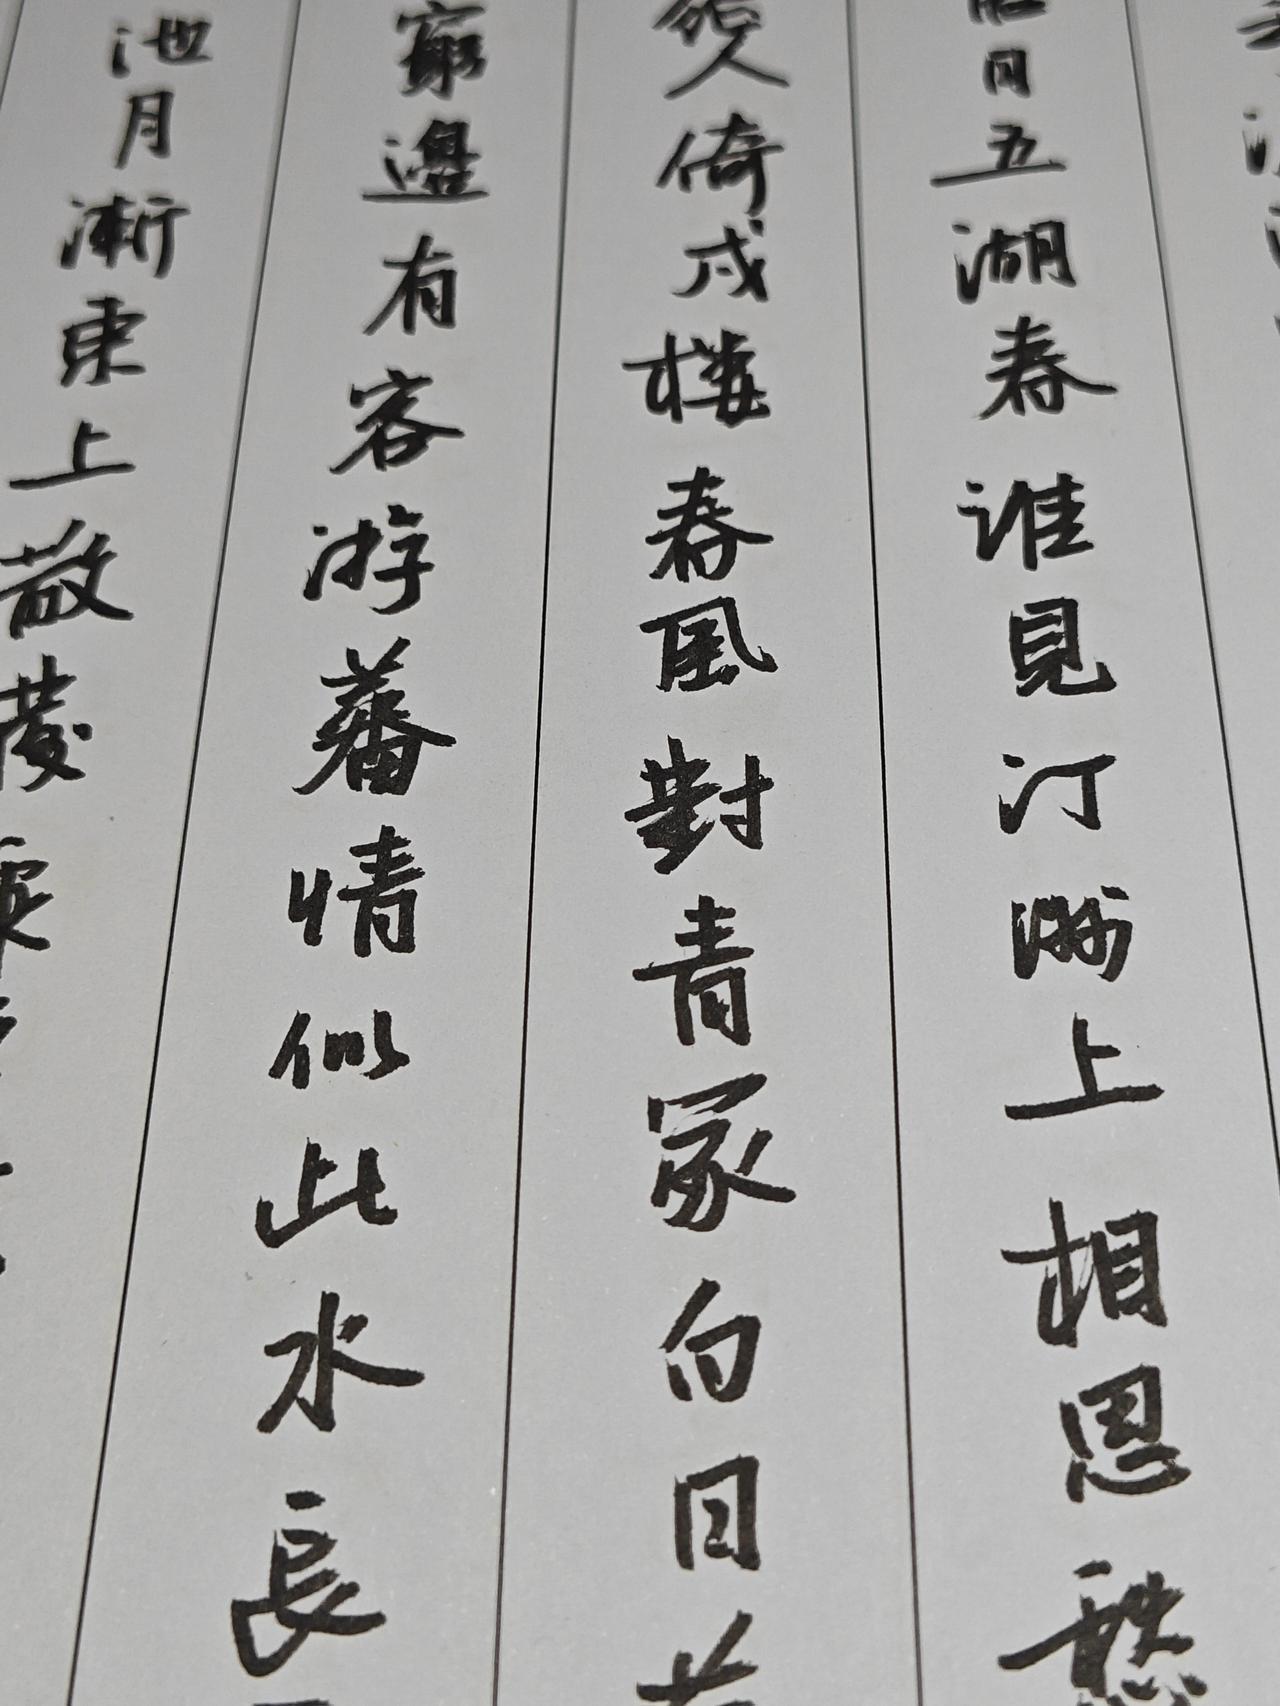 日五湖春谁見汀洲上相思愁
人倚戍楼春風對青冢白日
窮邊有客游蕃情似此水長
池月漸東上散髮乘